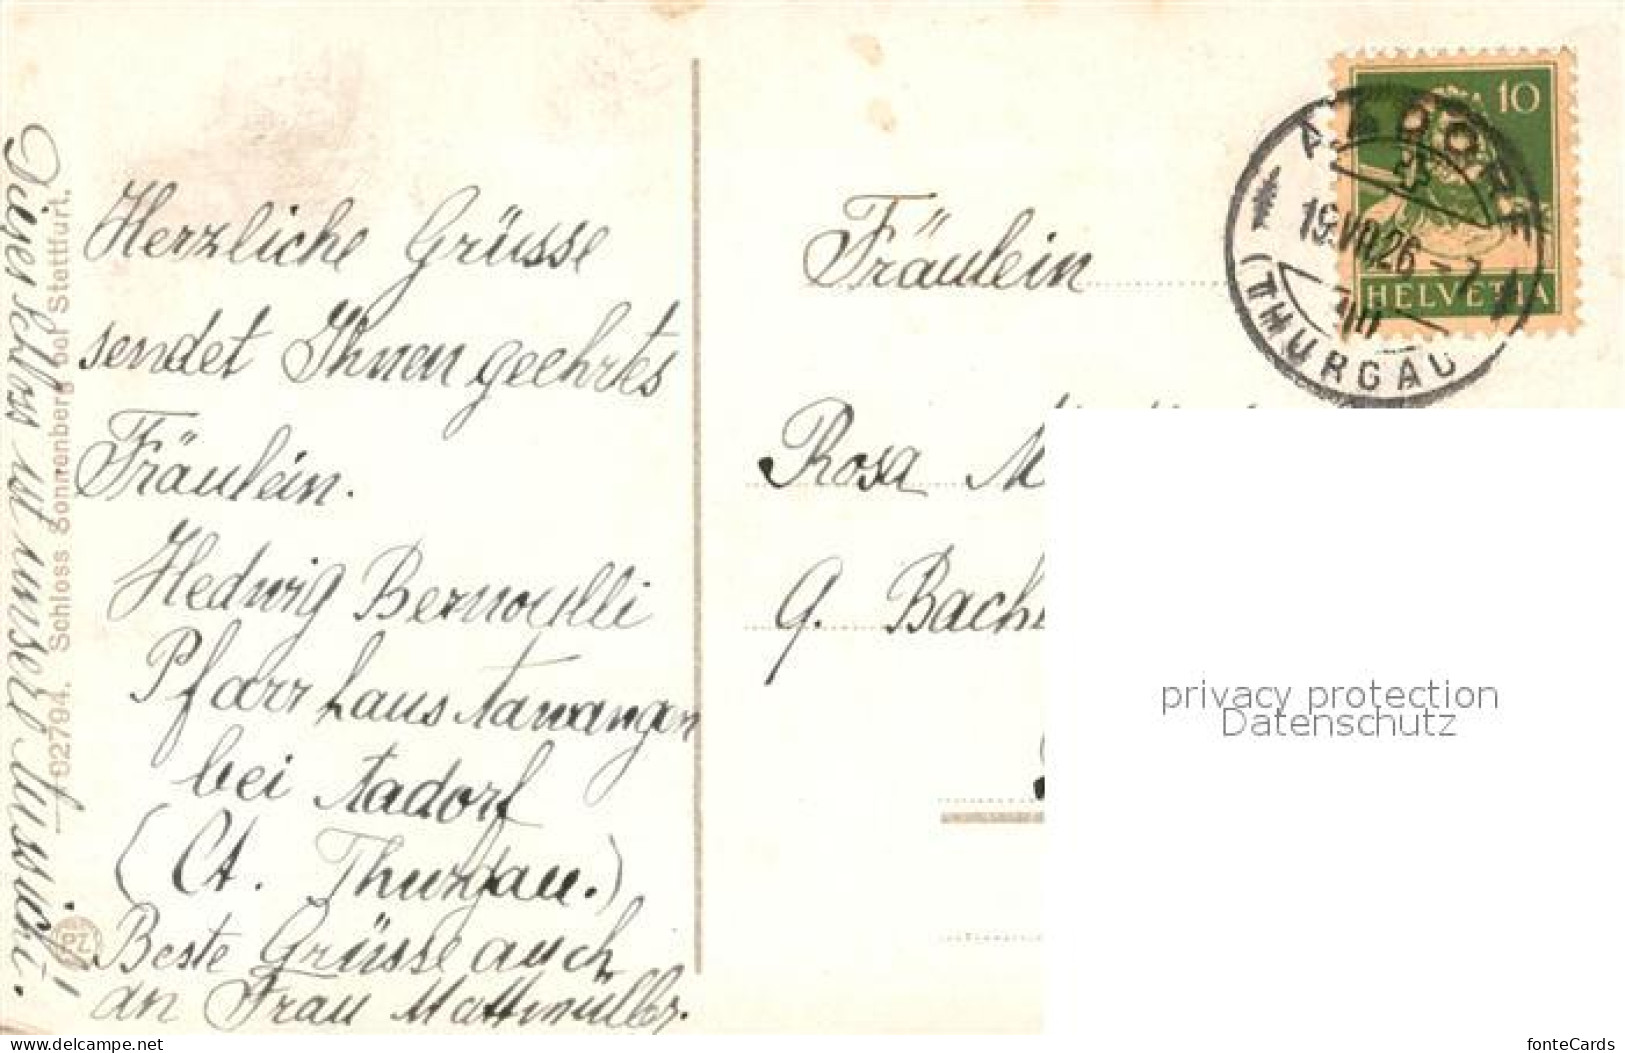 Dieses Schloss ist unsere Aussicht!
02794. Schloss Sonnenberg bei Stettfurt.
PZ
Herzliche Grüsse
sendet Ihnen geehrtes
Fräulein.
Hedwig Bernoulli
Pfarrhaus Aawangen
bei Aadorf
(Ct. Thurgau.)
Beste Grüsse auch
an Frau Mattmüller.
10
HELVETIA
AADORF
19.VII.26-7
(THURGAU)
Fräulein
Rosa M
q. Bach
privacy protection
Datenschutz
www.delcampe.net
fonteCards